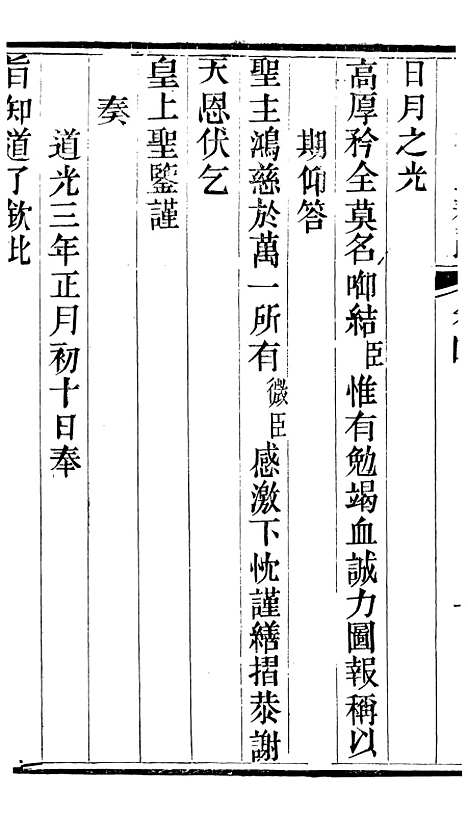 日月之光
高厚矜全莫名啣結臣惟有勉竭血誠力圖報稱以
期仰答
聖主鴻慈於萬一所有微臣感激下忱謹繕摺恭謝
天恩伏乞
皇上聖鑒謹
奏
道光三年正月初十日奉
旨知道了欽此